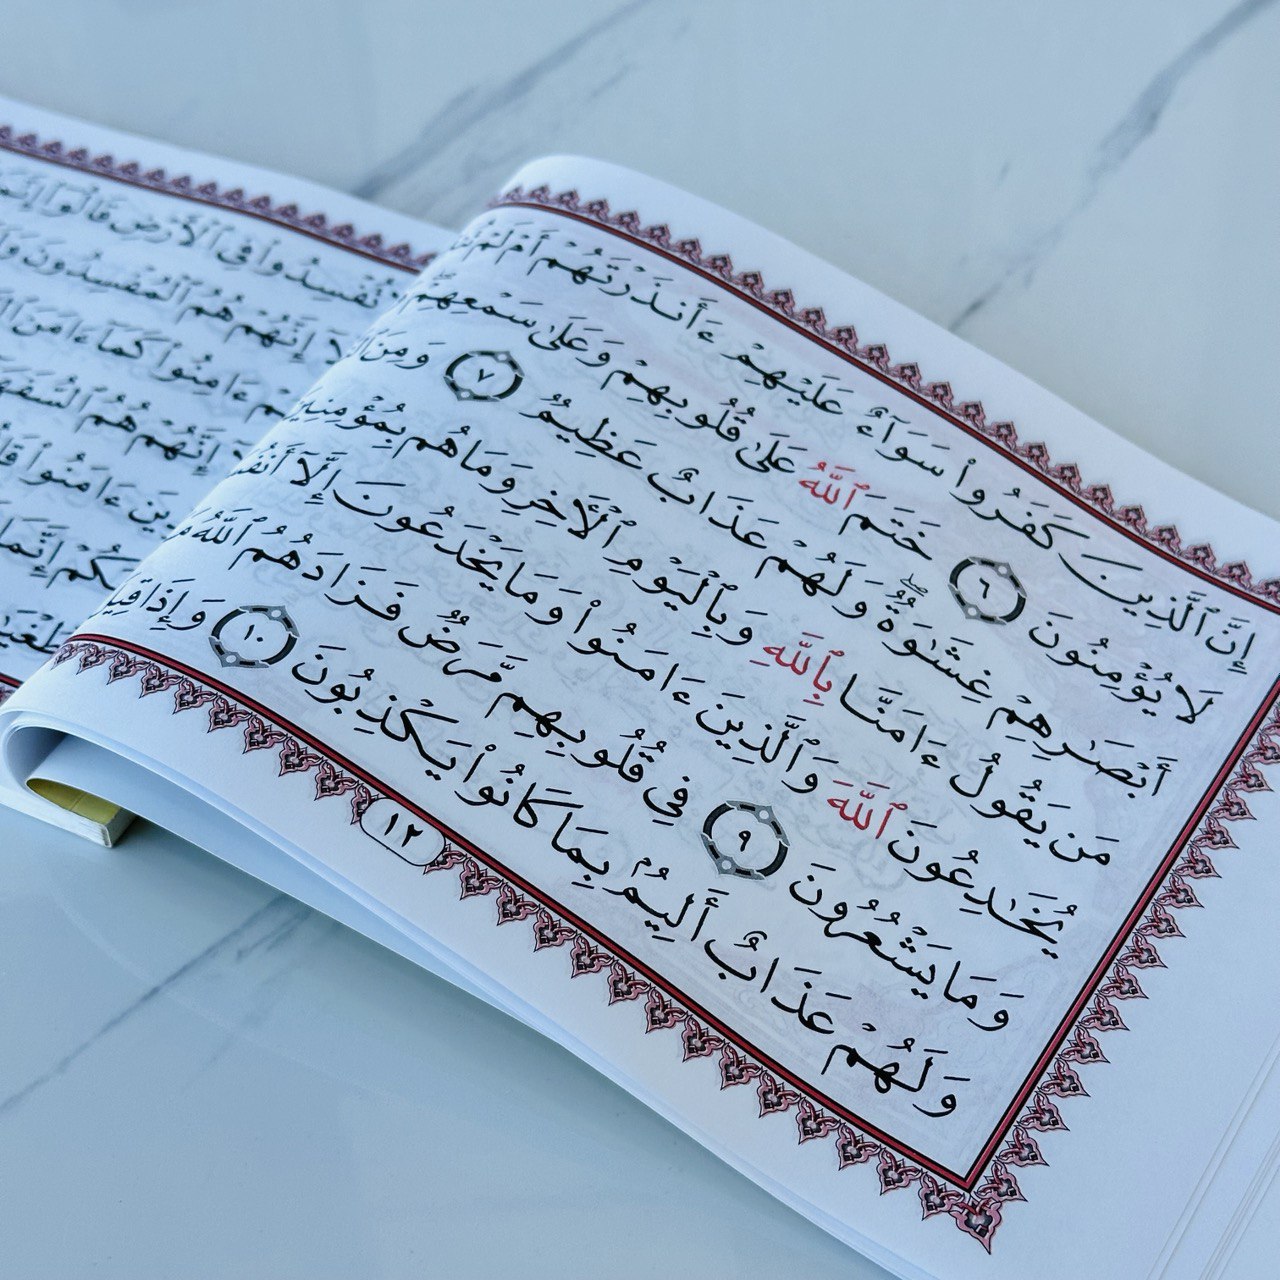 إِنَّ ٱلَّذِينَ كَفَرُوا۟ سَوَآءٌ عَلَيْهِمْ ءَأَنذَرْتَهُمْ أَمْ لَمْ
لَا يُؤْمِنُونَ ٦ خَتَمَ ٱللَّهُ عَلَىٰ قُلُوبِهِمْ وَعَلَىٰ سَمْعِهِمْ
أَبْصَٰرِهِمْ غِشَٰوَةٌۖ وَلَهُمْ عَذَابٌ عَظِيمٌ ٧ وَمِنَ
مَن يَقُولُ ءَامَنَّا بِٱللَّهِ وَبِٱلْيَوْمِ ٱلْأَخِرِ وَمَا هُم بِمُؤْمِنِينَ
يُخَٰدِعُونَ ٱللَّهَ وَٱلَّذِينَ ءَامَنُوا۟ وَمَا يَخْدَعُونَ إِلَّآ
وَمَا يَشْعُرُونَ ٩ فِى قُلُوبِهِم مَّرَضٌ فَزَادَهُمُ ٱللَّهُ
وَلَهُمْ عَذَابٌ أَلِيمٌۢ بِمَا كَانُوا۟ يَكْذِبُونَ ١٠ وَإِذَا
١٢
تُفْسِدُوا۟ فِى ٱلْأَرْضِ قَالُوٓا۟
إِنَّهُمْ هُمُ ٱلْمُفْسِدُونَ
ءَامِنُوا۟ كَمَآ ءَامَنَ
إِنَّهُمْ هُمُ
ءَامَنُوا۟
إِنَّمَا